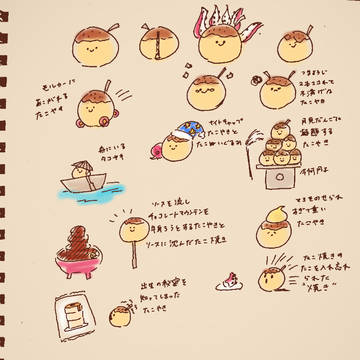 モルカーに
あこがれる
たこやき
つまようじ
2本さされて
不満げな
たこやき
舟にいる
タコヤキ
ナイトキャップ
たこやきと
たこ
月見だんごに
紛れする
たこやき
ソースを流し
チョコレートマウンテンを
自負ろうとするたこやきと
ソースに沈んだたこ焼き
マヨをのせられ
すぎて重い
たこやき
出生の秘密を
知ってしまった
たこやき
たこ焼きの
たこを入れ忘れ
られた
"焼き"